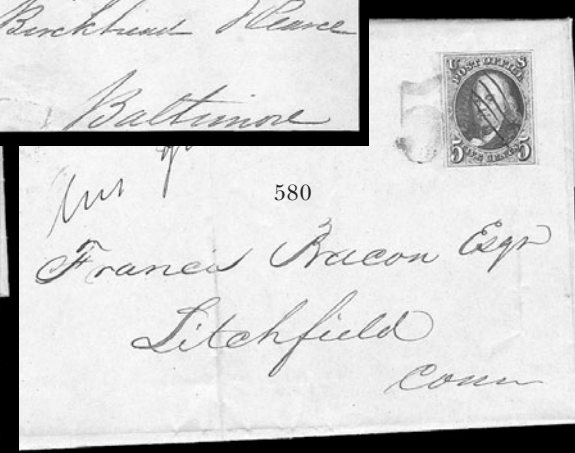 Birckhead & Pearce
Baltimore
U S
POST OFFICE
5 FIVE CENTS 5
5
580
Francis Bacon Esqr
Litchfield
Conn